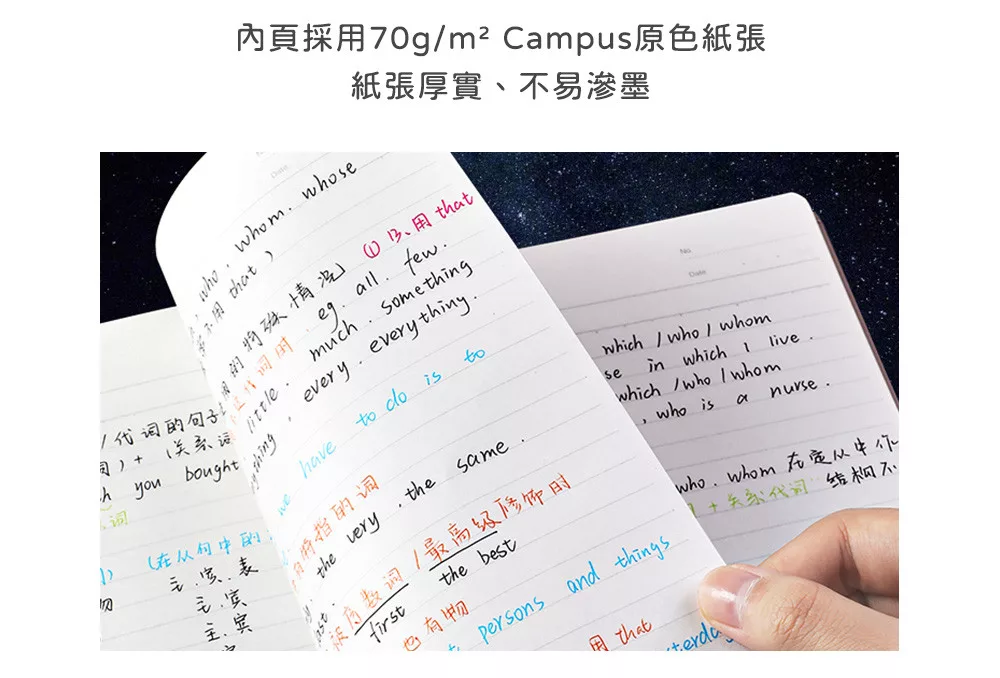 內頁採用70g/m² Campus原色紙張
紙張厚實、不易滲墨
Date
who . whom . whose
用 that )
情况 ① 只用 that
eg . all . few .
little . much . something
everything , every . everything .
we have to do is to
的词
the very , the same .
被序数词 / 最高级修饰时
first the best
也有物
persons and things
用 that
/ 代词的句子
) + (关系词
you bought
词
(在从句中的
主 . 宾 . 表
主 . 宾
主 . 宾
No
Date
which / who / whom
in which I live .
which / who / whom
, who is a nurse .
who . whom 在定从中作
+ 关系代词 结构不